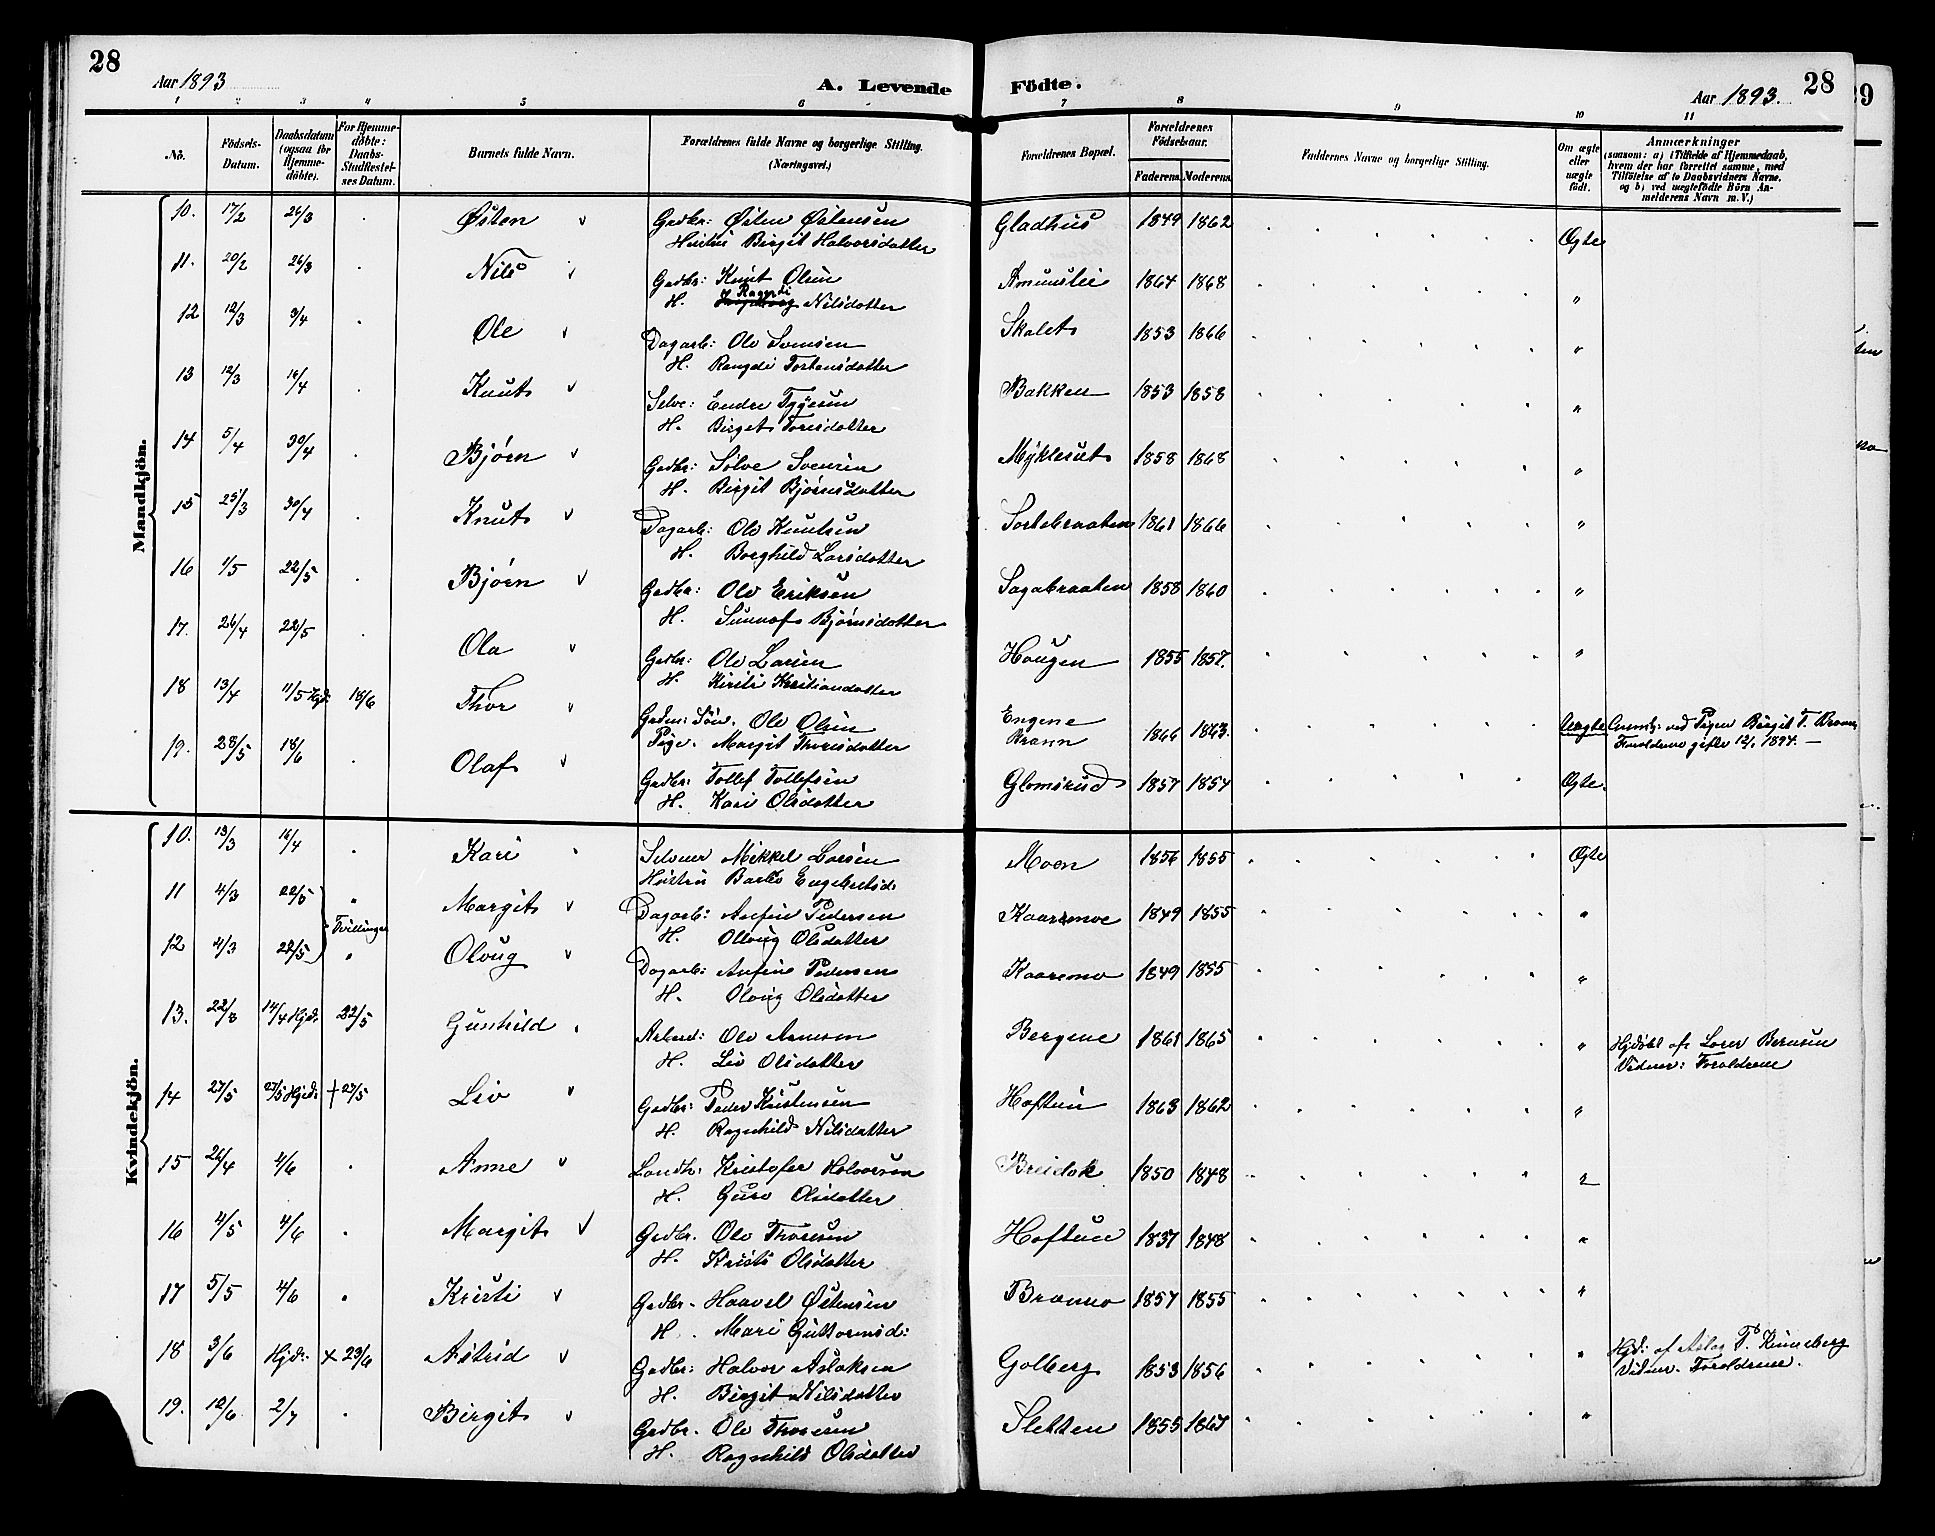 28
Aar 1893
A. Levende Födte.
Aar 1893.
28
29
1 2 3 4 5 6 7 8 9 10 11
No. Födsels-Datum. Daabsdatum (ogsaa for Hjemmedöbte). For Hjemmedöbte: Daabs-Stadfæstelses Datum. Barnets fulde Navn. Forældrenes fulde Navne og borgerlige Stilling. (Næringsvei.) Forældrenes Bopæl. Forældrenes Födselsaar. Faderens. Moderens. Faddernes Navne og borgerlige Stilling. Om ægte eller uægte födt. Anmærkninger (saasom: a) i Tilfælde af Hjemmedaab, hvem der har forrettet samme, med Tilföielse af to Daabsvidners Navne, og b) ved uægtefödte Börn Anmelderens Navn m. V.)
Mandkjön.
10. 17/2 26/3 Østen Gadbr: Østen Østensen Gladhus 1849 1862 Ægte
Hustru Birgit Halvorsdatter
11. 20/2 26/3 Nils Gadbr: Knut Olsen Amunslei 1864 1868 "
H. Rangdi Nilsdatter
12 12/3 3/4 Ole Dagarb: Ole Svensen Skalet 1853 1866 "
H. Rangdi Torstensdatter
13 12/3 16/4 Knut Selve: Endre Tygesen Bakken 1853 1858 "
H. Birget Toresdatter
14 5/4 30/4 Bjørn Gadbr: Sølve Svensen Myklesut 1858 1868 "
H. Birgit Bjørnsdatter
15 25/3 30/4 Knut Dagarb: Ole Knutsen Sortebraaten 1861 1866 "
H. Borghild Larsdatter
16 1/5 22/5 Bjørn Gadbr: Ole Eriksen Sagabraaten 1858 1860 "
H. Sunnof Bjørnsdatter
17. 26/4 22/5 Ola Gadbr: Ole Larsen Hougen 1855 1857. "
H. Kirsti Kristiansdatter
18 13/4 11/5 Hjd: 18/6 Thor Gadm: Søn. Ole Olsen Engene 1866 1863. Uægte Anm: ved Pigen Birgit T. Brænn
Pige. Margit Thoresdatter Brænn Forældrene gifte 12/1 1894. —
19. 28/5 18/6 Olaf Gadbr: Tollef Tollefsen Glomsrud 1857 1854 Ægte.
H. Kari Olsdatter
Kvindekjön.
10. 13/3 16/4 Kari Selveier Mikkel Larsen Moen 1856 1855 Ægte
Hustru Barbo Engebretsd:
11 4/3 22/5 " Margit Dagarb: Anfin Pedersen Kaaremoe 1849 1855 "
Tvillinger
H. Olloug Olsdatter
12 4/3 22/5 " Oloug Dagarb: Anfin Pedersen Kaaremo 1849 1855 "
H. Oloug Olsdatter
13. 22/3 14/4 Hjd: 22/5 Gunhild Arbeid: Ole Arnesen Bergene 1861 1865 " Hjdøbt af Lærer Bernsen
H. Liv Olsdatter Vidner: Forældrene
14 27/5 27/5 Hjd: † 27/5 Liv Gadbr: Peder Kristensen Hoftun 1863 1862 "
H. Ragnhild Nilsdatter
15 26/4 4/6 Anne Landh: Kristofer Halvorsen Breidok 1850 1848 "
H. Guro Olsdatter
16 4/5 4/6 Margit Gadbr. Ole Thoresen Hoftun 1837 1848 "
H. Kristi Olsdatter
17 5/5 4/6 Kristi Gadbr. Haavel Østensen Bramo 1857 1855 "
H. Mari Guttormsd:
18 3/6 Hjd: × 23/6 Astrid Gadbr: Halvor Aslaksen Golberg 1853 1856 " Hjd: af Aslag P. Kinneberg
H. Birgit Nilsdatter Vidner. Forældrene.
19. 12/6 2/7 Birgit Gadbr. Ole Thoresen Sletten 1855 1861 "
H. Ragnhild Olsdatter